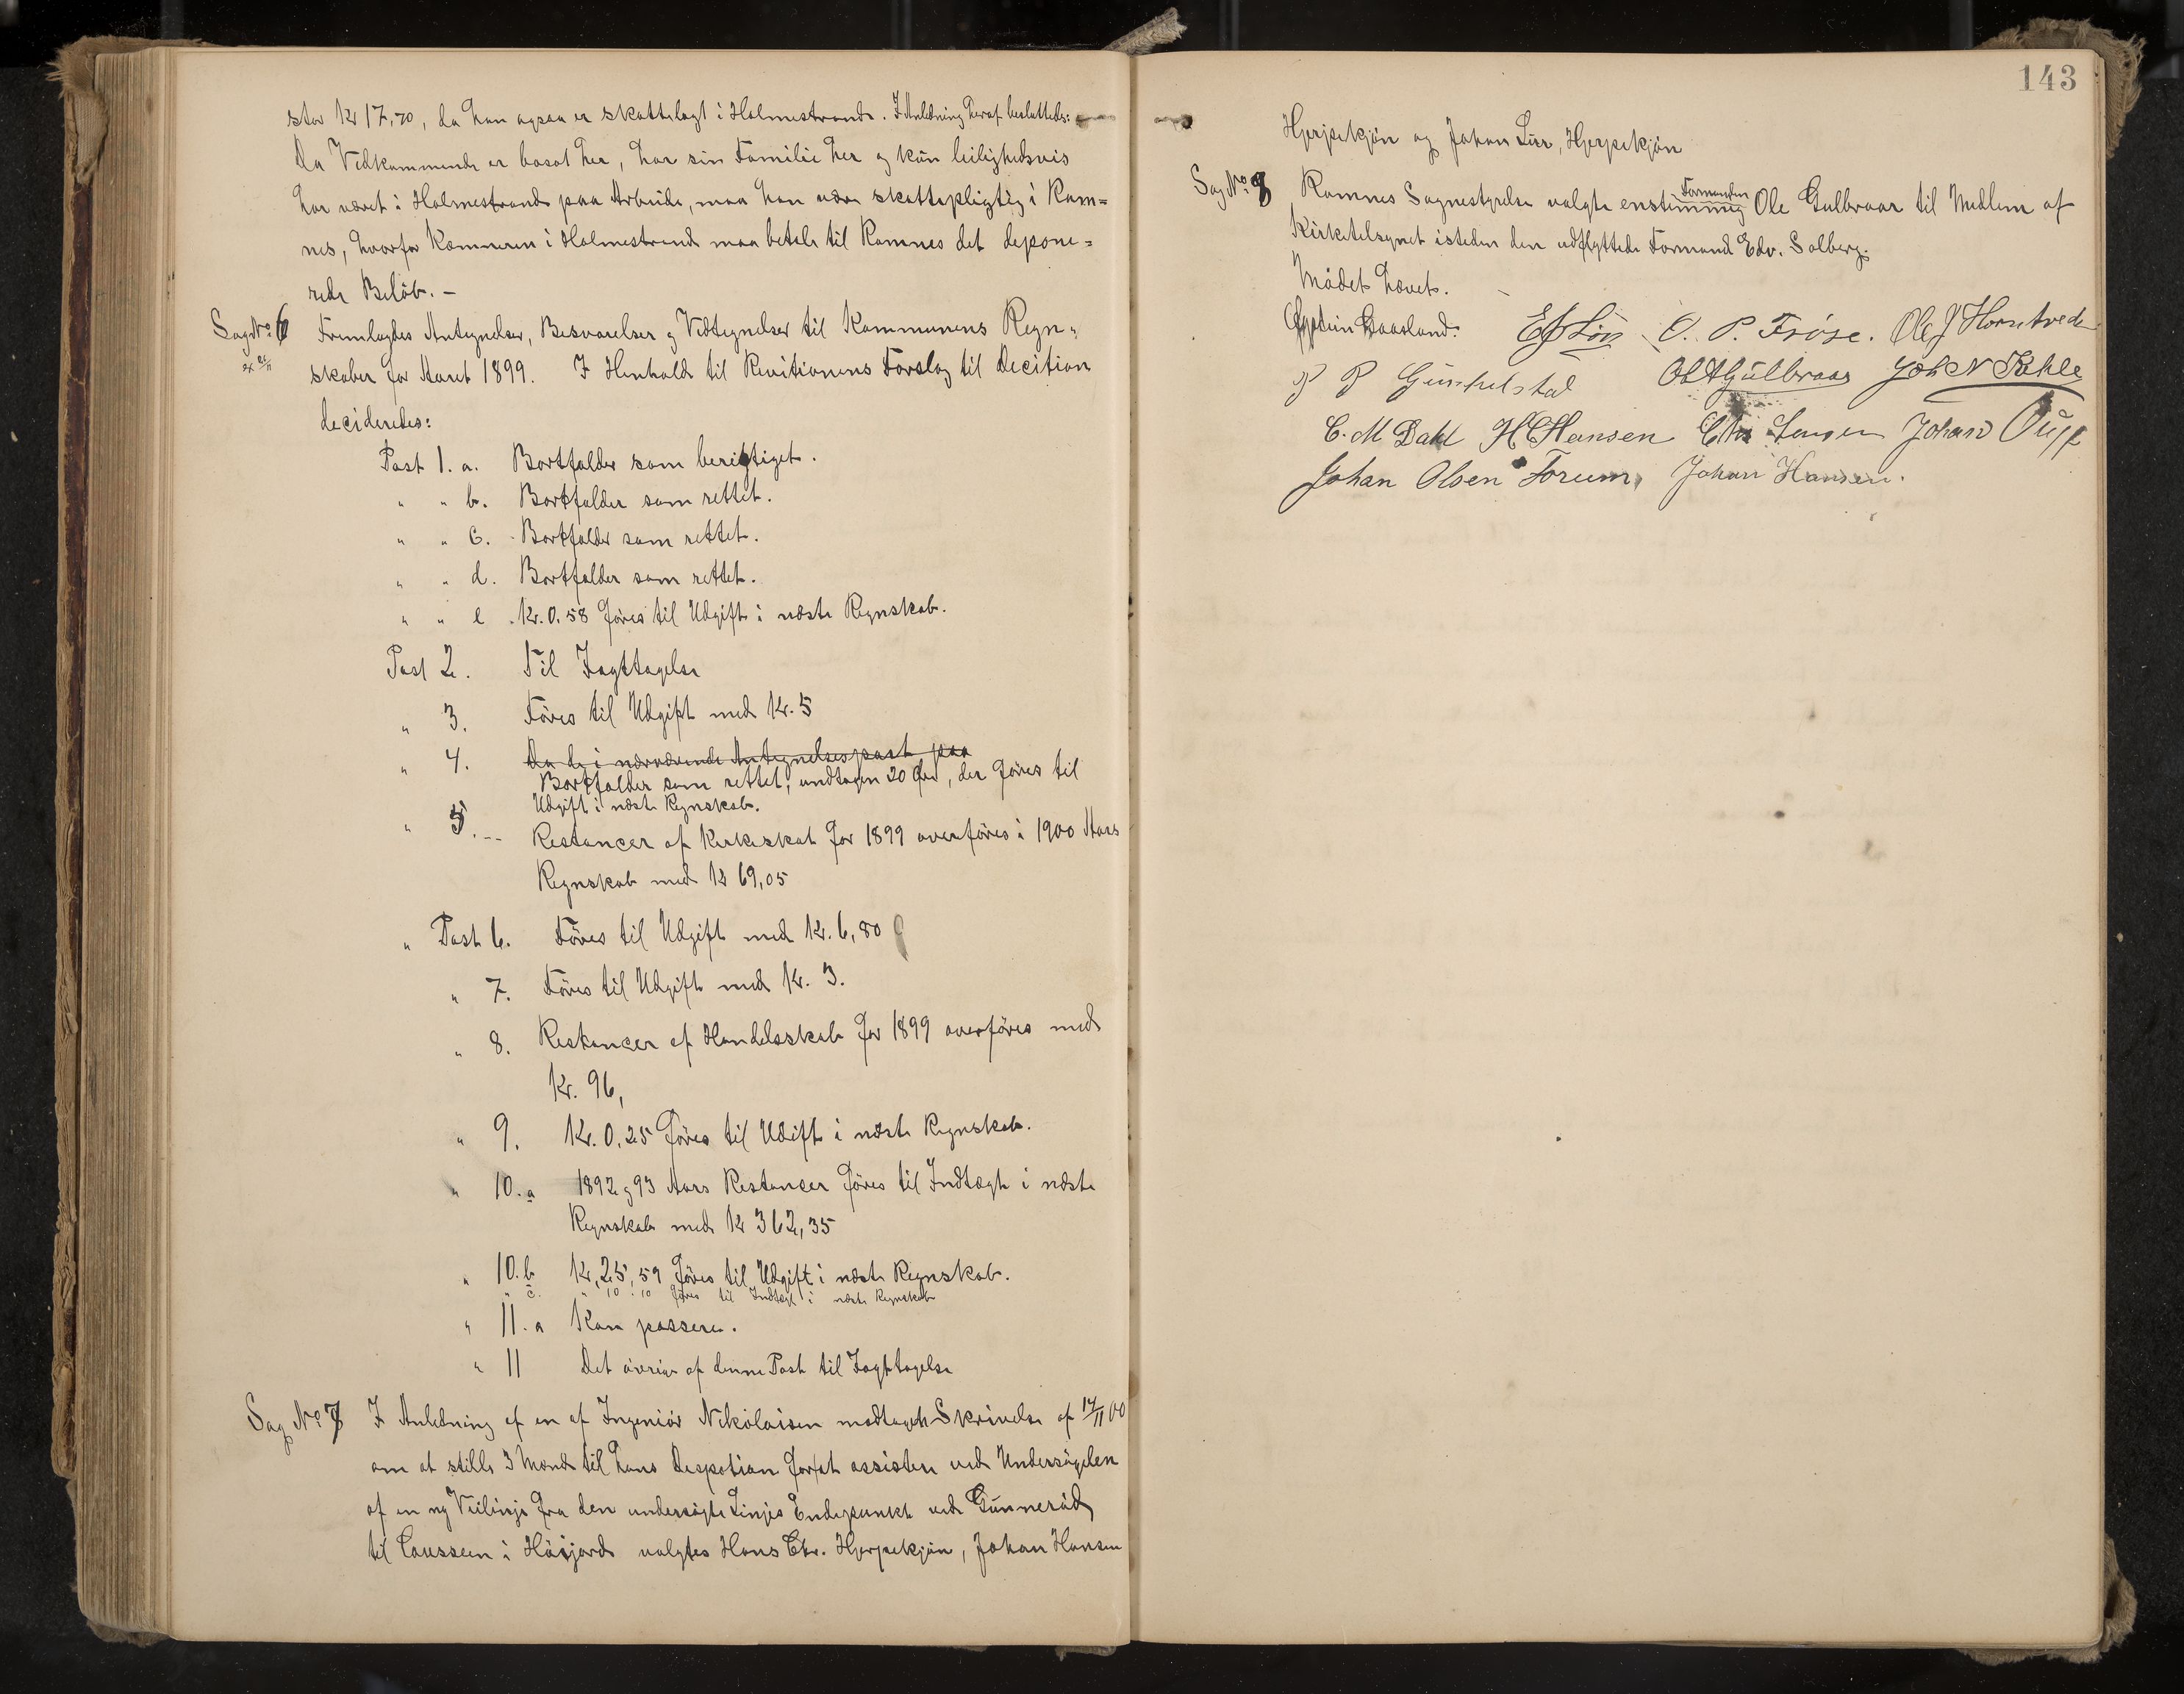 stor Kr 17,70, da han ogsaa er skattelagt i Holmestrand. I Anledning heraf besluttedes:
Da Vedkommende er bosat her, har sin Familie her og kun leilighedsvis
har været i Holmestrand paa Arbeide, maa han være skattepligtig i Ram=
nes, hvorfor Kæmneren i Holmestrand maa betale til Ramnes det depone=
rede Beløb. -
Sag No 6 Fremlagdes Antegnelser, Besvarelser og Vedtegnelser til Kommunens Regn=
skaber for Aaret 1899. I Henhold til Revitionens Forslag til Decition
decideredes:
Post 1. a. Bortfalder som berigtiget.
" " b. Bortfalder som rettet.
" " c. Bortfalder som rettet.
" " d. Bortfalder som rettet.
" " e. Kr. 0.58 føres til Udgift i næste Regnskab.
Post 2. Til Iagttagelse
" 3. Føres til Udgift med Kr. 5
" 4. Da de i nærværende Antegnelsespost paa
Bortfalder som rettet, undtagen 20 Øre, der føres til
Udgift i næste Regnskab.
" 5. -- Restancer af Kirkeskat for 1899 overføres i 1900 Aars
Regnskab med Kr 69,05
" Post 6. Føres til Udgift med Kr. 6,80
" 7. Føres til Udgift med Kr. 3.
" 8. Restancer af Handelsskat for 1899 overføres med
Kr. 96,
" 9. Kr. 0.25 føres til Udift i næste Regnskab.
" 10. a 1892 og 93 Aars Restancer føres til Indtægt i næste
Regnskab med Kr 362,35
" 10. b Kr, 25,59 føres til Udgift i næste Regnskab.
" c. " 10.10 føres til Indtægt i næste Regnskab
" 11. a Kan passere.
" 11 Det øvrige af denne Post til Iagttagelse
Sag No 7 I Anledning af en af Ingeniør Nikolaisen modtagen Skrivelse af 14/11 00
om at stille 3 Mand til hans Despotion for at assistere ved Undersøgelen
af en ny Veilinje fra den undersøgte Linjes Endepunkt ved Gunnerød
til Causseen i Høijord valgtes Hans Chr. Hjerpekjøn, Johan Hansen
143
Hjerpekjøn og Johan Lur, Hjerpekjøn
Sag No 8 Ramnes Sognestyrelse valgte enstemmig Formanden Ole Gulbraar til Medlem af
Kirketilsynet isteden den udflyttede Formand Edv. Solberg.
Mødet hævet.
Gaasland. O. P. Frøse. Ole J Horntvedt
P P Ole A Gulbraar Joh N Kahle
C. M Dahl H C Hansen Chr Jensen Johan
Johan Olsen Forum, Johan Hansen.